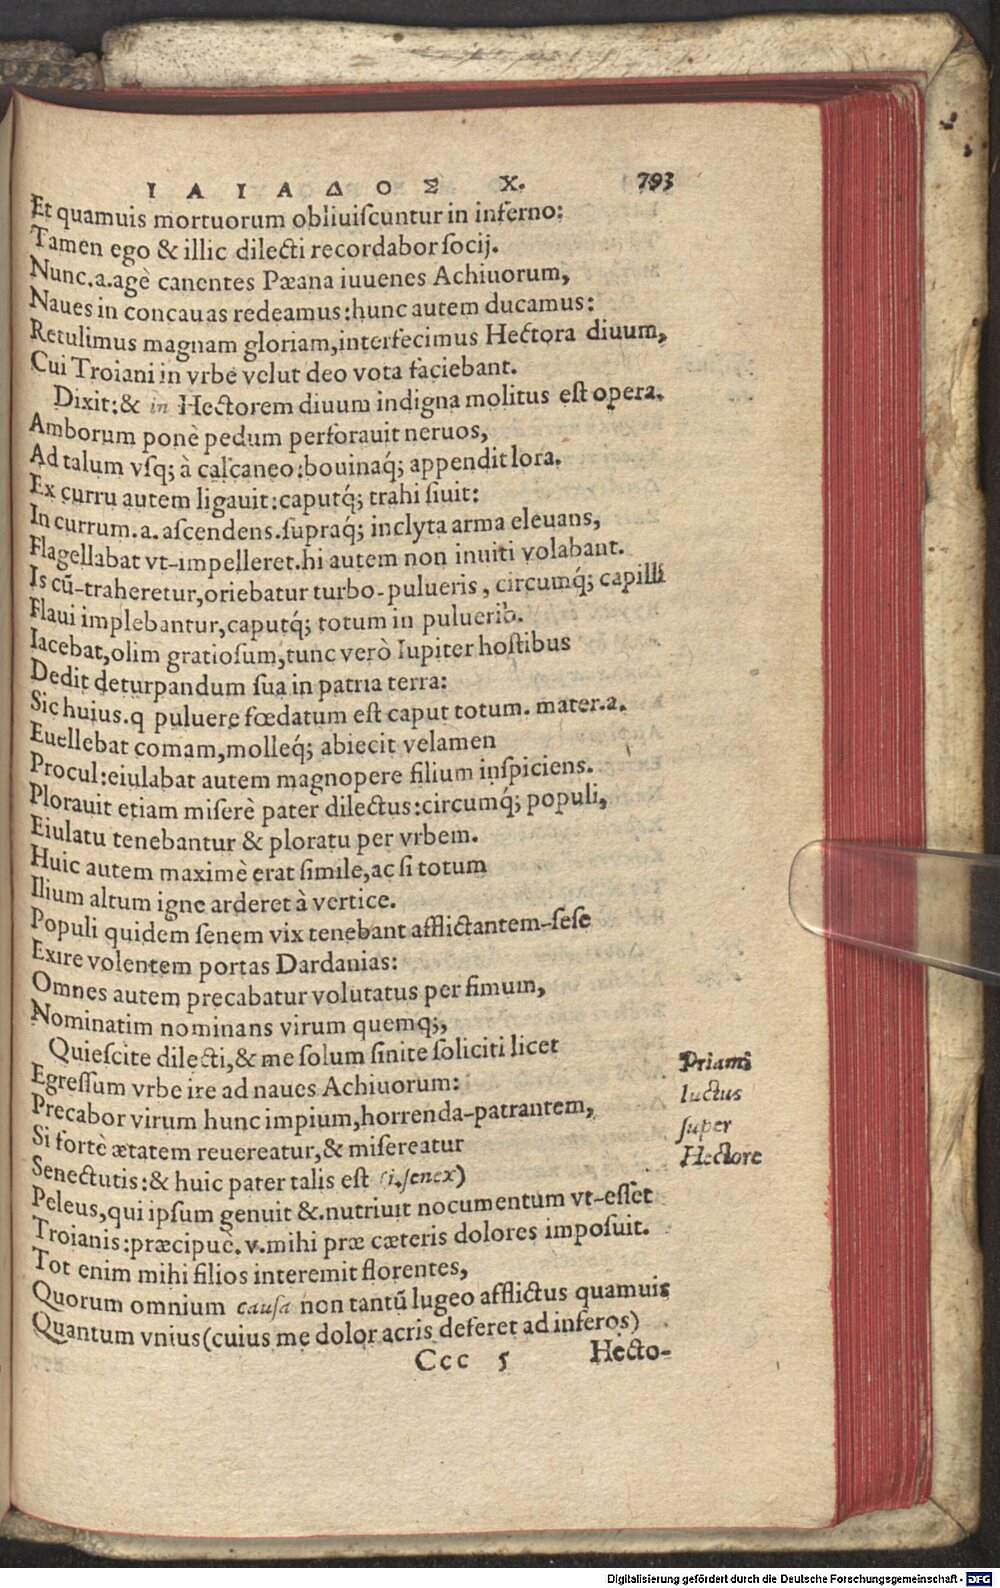 ΙΛΙΑΔΟΣ Χ. 793
Et quamuis mortuorum obliuiſcuntur in inferno:
Tamen ego & illic dilecti recordabor ſocij.
Nunc.a.agè canentes Pæana iuuenes Achiuorum,
Naues in concauas redeamus:hunc autem ducamus:
Retulimus magnam gloriam,interfecimus Hectora diuum,
Cui Troiani in vrbe velut deo vota faciebant.
Dixit:& in Hectorem diuum indigna molitus eſt opera.
Amborum ponè pedum perforauit neruos,
Ad talum vſq; à calcaneo:bouinaq́; appendit lora.
Ex curru autem ligauit:caputq́; trahi ſiuit:
In currum.a.aſcendens.ſupraq́; inclyta arma eleuans,
Flagellabat vt-impelleret.hi autem non inuiti volabant.
Is cū-traheretur,oriebatur turbo-pulueris, circumq́; capilli
Flaui implebantur,caputq́; totum in pulueribꝰ.
Iacebat,olim gratioſum,tunc verò Iupiter hoſtibus
Dedit deturpandum ſua in patria terra:
Sic huius.q puluere fœdatum eſt caput totum. mater.a.
Euellebat comam,molleq́; abiecit velamen
Procul:eiulabat autem magnopere filium inſpiciens.
Plorauit etiam miſerè pater dilectus:circumq́; populi,
Eiulatu tenebantur & ploratu per vrbem.
Huic autem maximè erat ſimile,ac ſi totum
Ilium altum igne arderet à vertice.
Populi quidem ſenem vix tenebant afflictantem-ſeſe
Exire volentem portas Dardanias:
Omnes autem precabatur volutatus per fimum,
Nominatim nominans virum quemq;,
Quieſcite dilecti,& me ſolum ſinite ſoliciti licet
Egreſſum vrbe ire ad naues Achiuorum:
Precabor virum hunc impium,horrenda-patrantem,
Si fortè ætatem reuereatur,& miſereatur
Senectutis:& huic pater talis eſt (i.ſenex)
Peleus,qui ipſum genuit &.nutriuit nocumentum vt-eſſet
Troianis:præcipuè.v.mihi præ cæteris dolores impoſuit.
Tot enim mihi filios interemit florentes,
Quorum omnium cauſa non tantū lugeo afflictus quamuis
Quantum vnius(cuius me dolor acris deferet ad inferos)
Ccc 5 Hecto-
Priami
luctus
ſuper
Hectore
Digitalisierung gefördert durch die Deutsche Forschungsgemeinschaft - DFG